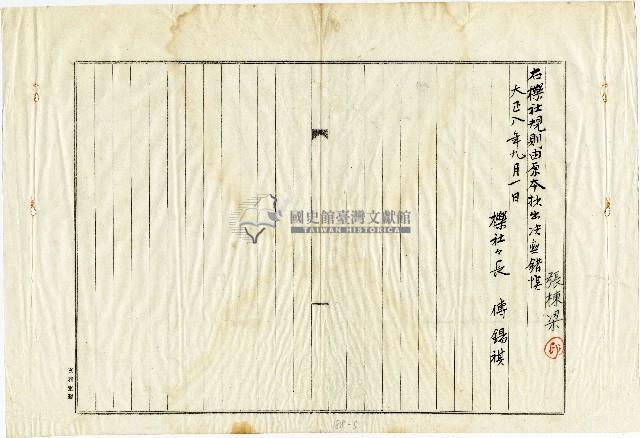 右櫟社規則由原本抄出決無錯悞
大正八年九月一日
櫟社々長 傅錫祺
張棟梁
印
國史館臺灣文獻館
TAIWAN HISTORICA